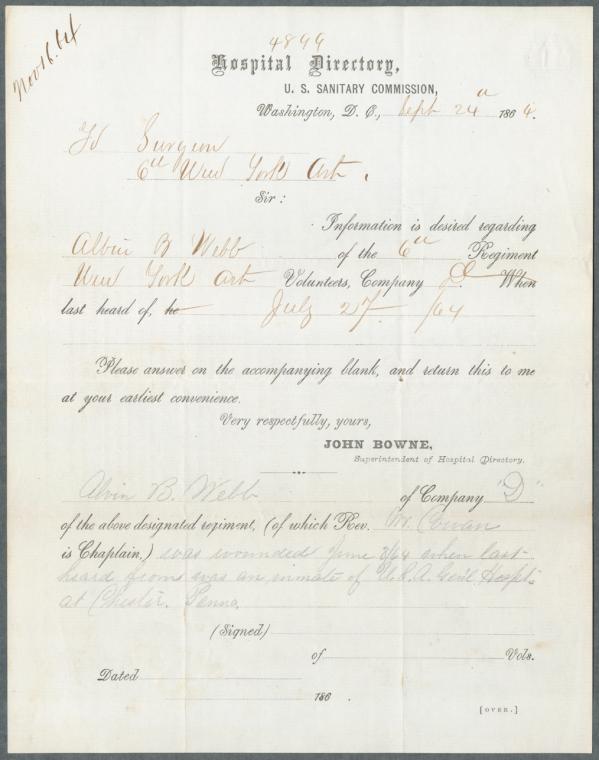 4899
Nov 16. 64
Hospital Directory,
U. S. SANITARY COMMISSION,
Washington, D. C., Sept 24th 1864.
To Surgeon
6th New York Art.
Sir :
Information is desired regarding
Albin B Webb of the 6th Regiment
New York Art Volunteers, Company D When
last heard of, he July 27 /64
Please answer on the accompanying blank, and return this to me
at your earliest convenience.
Very respectfully, yours,
JOHN BOWNE,
Superintendent of Hospital Directory.
Alvin B. Webb of Company "D"
of the above designated regiment, (of which Rev. Cowan
is Chaplain.) was wounded June /64 when last
heard from was an inmate of U.S.A. Gen'l Hospt.
at Chester. Penna.
(Signed)
of Vols.
Dated
186 .
[OVER.]